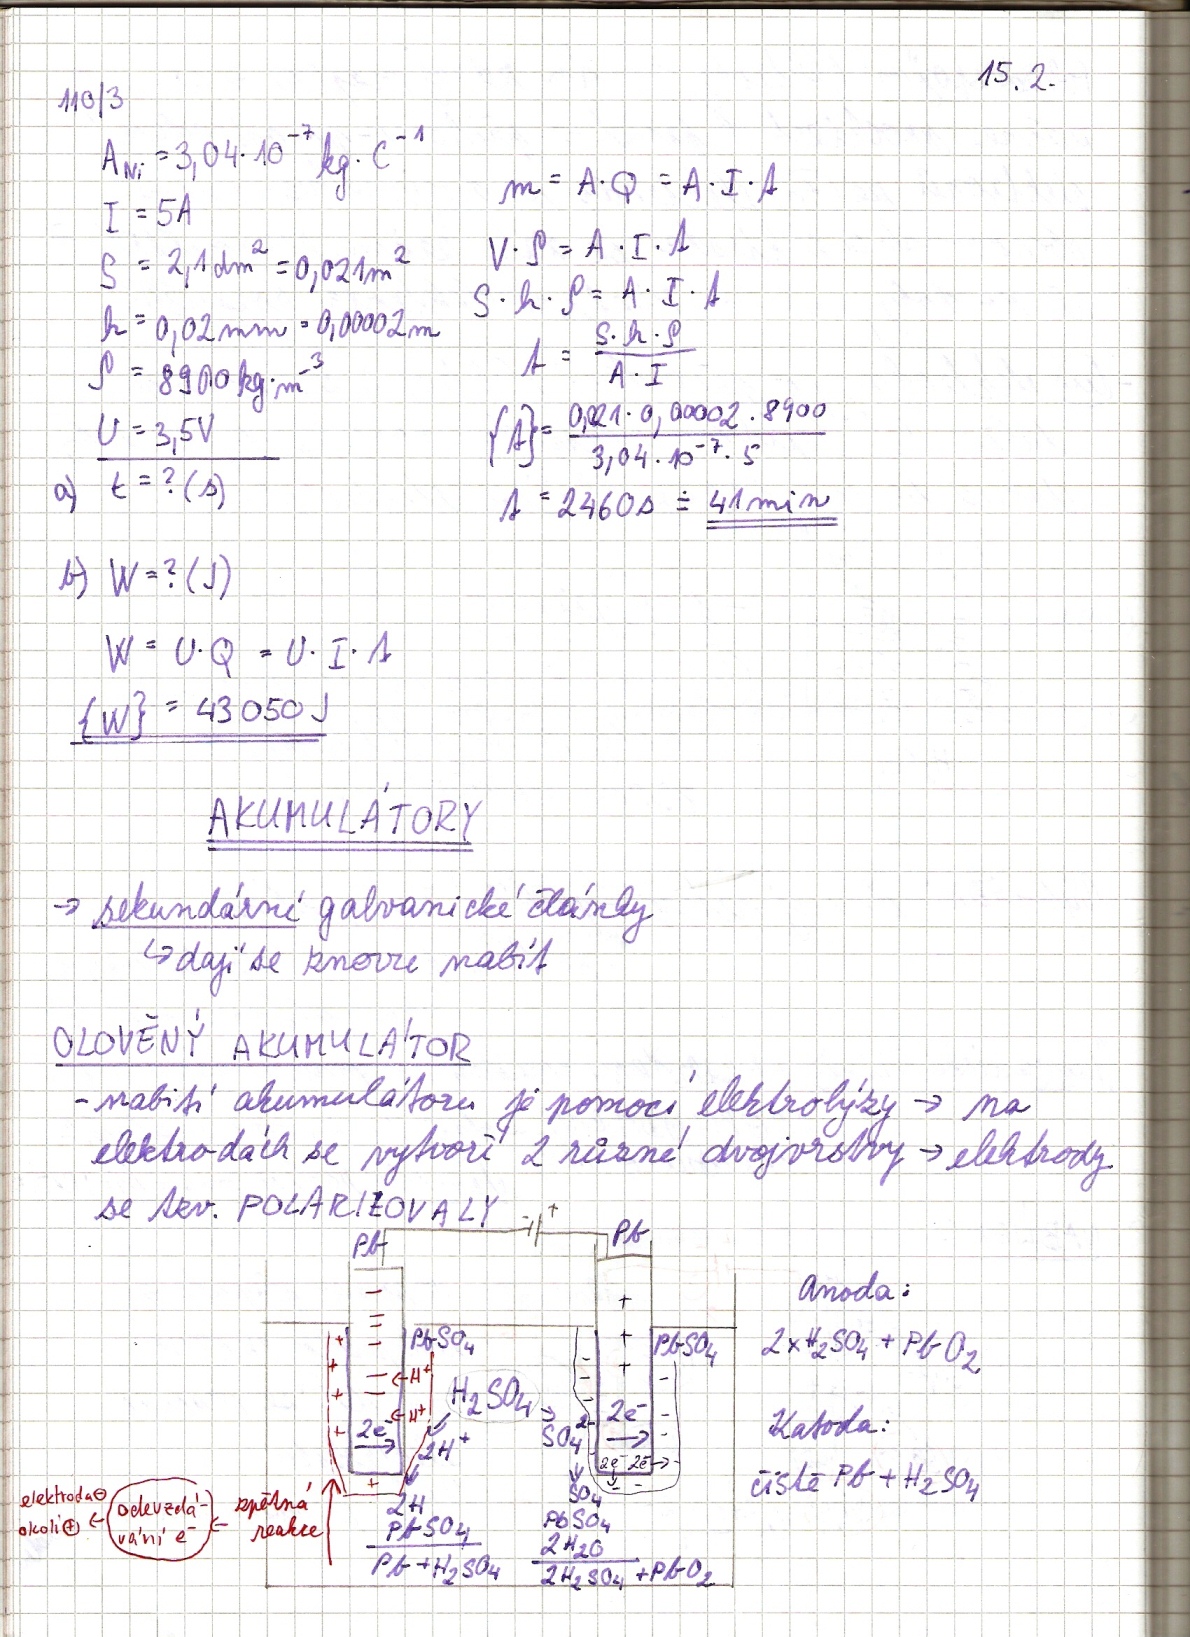 15.2.
110/3
A_Ni = 3,04·10^-7 kg·C^-1
I = 5A
S = 2,1dm² = 0,021m²
h = 0,02mm = 0,00002m
ρ = 8900kg·m^-3
U = 3,5V
a) t = ? (s)
m = A·Q = A·I·t
V·ρ = A·I·t
S·h·ρ = A·I·t
t = S·h·ρ / A·I
{t} = 0,021·0,00002·8900 / 3,04·10^-7·5
t = 2460s ≐ 41min
b) W = ? (J)
W = U·Q = U·I·t
{W} = 43050J
AKUMULÁTORY
→ sekundární galvanické články
↳ dají se znovu nabít
OLOVĚNÝ AKUMULÁTOR
- nabití akumulátoru je pomocí elektrolýzy → na
elektrodách se vytvoří 2 různé dvojvrstvy → elektrody
se tzv. POLARIZOVALY
Pb
- +
Pb
PbSO₄
← H⁺
← H⁺
2e⁻
→
2H⁺
H₂SO₄
2H
PbSO₄
Pb + H₂SO₄
PbSO₄
2e⁻
→
2e⁻ 2e⁻ →
SO₄²⁻
SO₄
PbSO₄
2H₂O
2H₂SO₄ + PbO₂
Anoda:
2×H₂SO₄ + PbO₂
Katoda:
čisté Pb + H₂SO₄
elektroda ⊖
okolí ⊕
← odevzdá-
vání e⁻
← zpětná
reakce